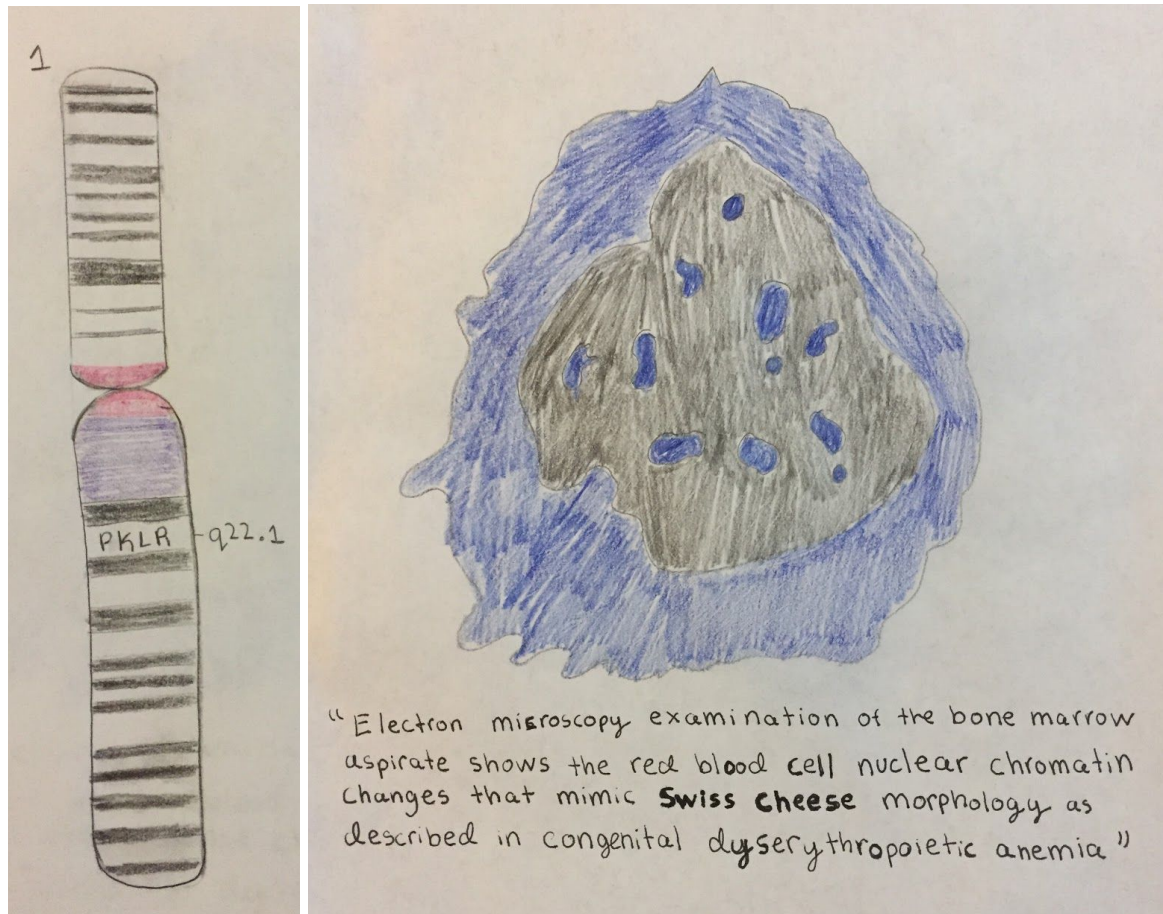 1
PKLR
q22.1
"Electron microscopy examination of the bone marrow
aspirate shows the red blood cell nuclear chromatin
changes that mimic Swiss cheese morphology as
described in congenital dyserythropoietic anemia"